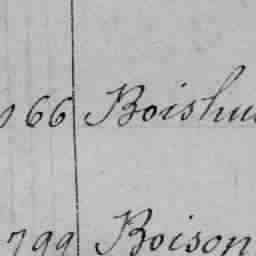 66 Boishu
799 Boison